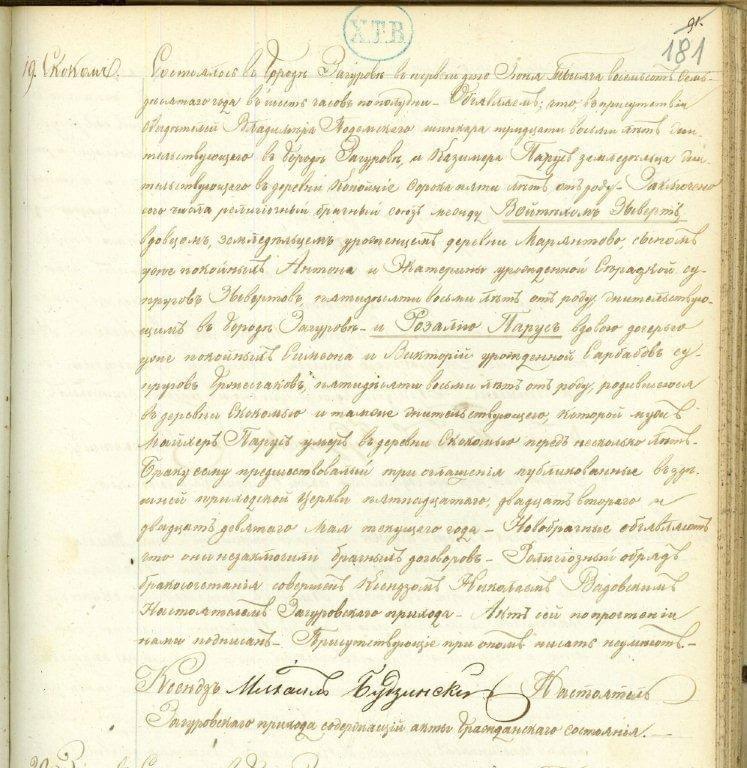 Х.Р.В.
91.
181
19. Скокомя.
Состоялось въ Городѣ Загуровѣ въ первый дню Іюня Тысяча восемьсотъ семь-
десятаго года въ шесть часовъ пополудни – Объявляемъ; что въ присутствіи
свидѣтелей Владиміра Подемскаго шинкаря тридцати восьми лѣтъ жи-
тельствующаго въ Городѣ Загуровѣ, и Казимера Парусъ земледѣльца жи-
тельствующаго въ деревни Копойнѣ сорока пяти лѣтъ отъ роду – Заключено
сего числа религіозный брачный союзъ между Войтѣхомъ Зывертъ,
вдовцомъ, земледѣльцемъ урожденцемъ деревни Марянтово, сыномъ
уже покойныхъ Антона и Екатерины урожденной Сѣрадской су-
пруговъ Зывертовъ, пятидесяти восьми лѣтъ отъ роду, жительствую-
щимъ въ Городѣ Загуровѣ – и Розалію Парусъ вдовою дочерью
уже покойныхъ Симеона и Викторіи урожденной Сарбабовъ су-
пруговъ пятидесяти восьми лѣтъ отъ роду, родившеюся
въ деревни Скокомью и тамже жительствующаго, которой мужъ
Майхеръ Парусъ умеръ въ деревни Скокомью передъ несколько лѣтъ –
Браку сему предшествовалый три оглашенія публикованные въ здѣ-
шней приходской Церкви пятнадцатаго, двадцать втораго и
двадцать девятаго Мая текущаго года – Новобрачные объявляютъ
что они незаключили брачныхъ договоровъ – Религіозный обрядъ
бракосочетанія совершенъ Ксендзомъ Николаемъ Вадовскимъ
Настоятелемъ Загуровскаго прихода – Актъ сей по прочтеніи
нами подписанъ – Присутствующіе при ономъ писать неумѣютъ –
Ксендзъ Михаилъ Будзинскій Настоятель
Загуровскаго прихода содержащій акты Гражданскаго состоянія. –
20.